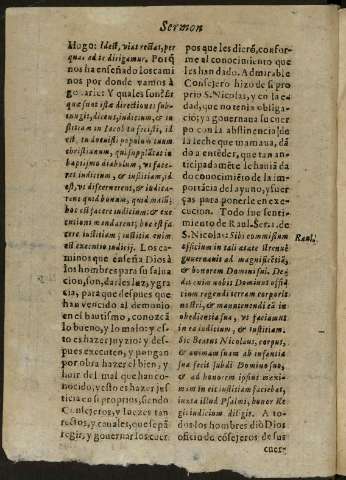 Sermon
Hugo: Idest, vias rectas, per
quas ad te dirigamur. Porq̃
nos ha enseñado los cami
nos por donde vamos à
gozarle: Y quales son: Et
quæ sunt istæ directiones sub-
iungit, dicens, iudicium, & iu
stitiam in Iacob tu fecisti, id
est, tu docuisti populum tuum
christianum, qui supplãtat in
baptismo diabolum, vt face-
ret iudicium, & iustitiam, id
est, vt discernerent, & iudica-
rent quod bonum, quid malũ;
hoc est facere iudicium: & exe
cutioni mandarent; hoc est fa
cere iustitiam; iustitia enim
est executio iudicij. Los ca-
minos que enseña Dios à
los hombres para su salua
cion, son, darles luz, y gra
cia, para que despues que
han vencido al demonio
en el bautismo, conozcã
lo bueno, y lo malo: y es-
to es hazer juyzio: y des-
pues executen, y pongan
por obra hazer el bien, y
huir del mal que han co-
nocido, y esto es hazer jus
ticia en si proprios, siendo
Consejeros, y Iuezes tan
rectos, y cauales, que sepã
regir, y gouernar los cuer
pos que les dierõ, confor-
me al conocimiento que
les han dado. Admirable
Consejero hizo de si pro
prio S. Nicolas, y en la e-
dad, que no tenia obliga-
ciõ; y a gouernaua su cuer
po con la abstinencia de
la leche que mamaua, dã-
do a entẽder, que tan an-
ticipadamẽte le hauia da
do conocimiẽto de la im-
portãcia del ayuno, y fuer
ças para ponerle en exe-
cucion. Todo fue senti-
miento de Raul. Ser. 1. de
S. Nicolao: Sibi commissum
officium in tali ætate strenuè
guuernauit ad magnificẽtiã,
& honorem Domini sui. De-
dit enim nobis Dominus offici
tium regendi terram corporis
nostri, & manutenendi eã in
obedientia sua, vt faciamus
in ea iudicium, & iustitiam.
Sic Beatus Nicolaus, corpus,
& animam suam ab infantia
sua fecit subdi Domino suo,
& ad honorem ipsius maxi-
mam in eis iustitiam faciebat,
iuxta illud Psalmi, honor Re
gis iudicium diligit. A to-
dos los hombres diò Dios
oficio de cõsejeros de sus
Raul.
cuer-